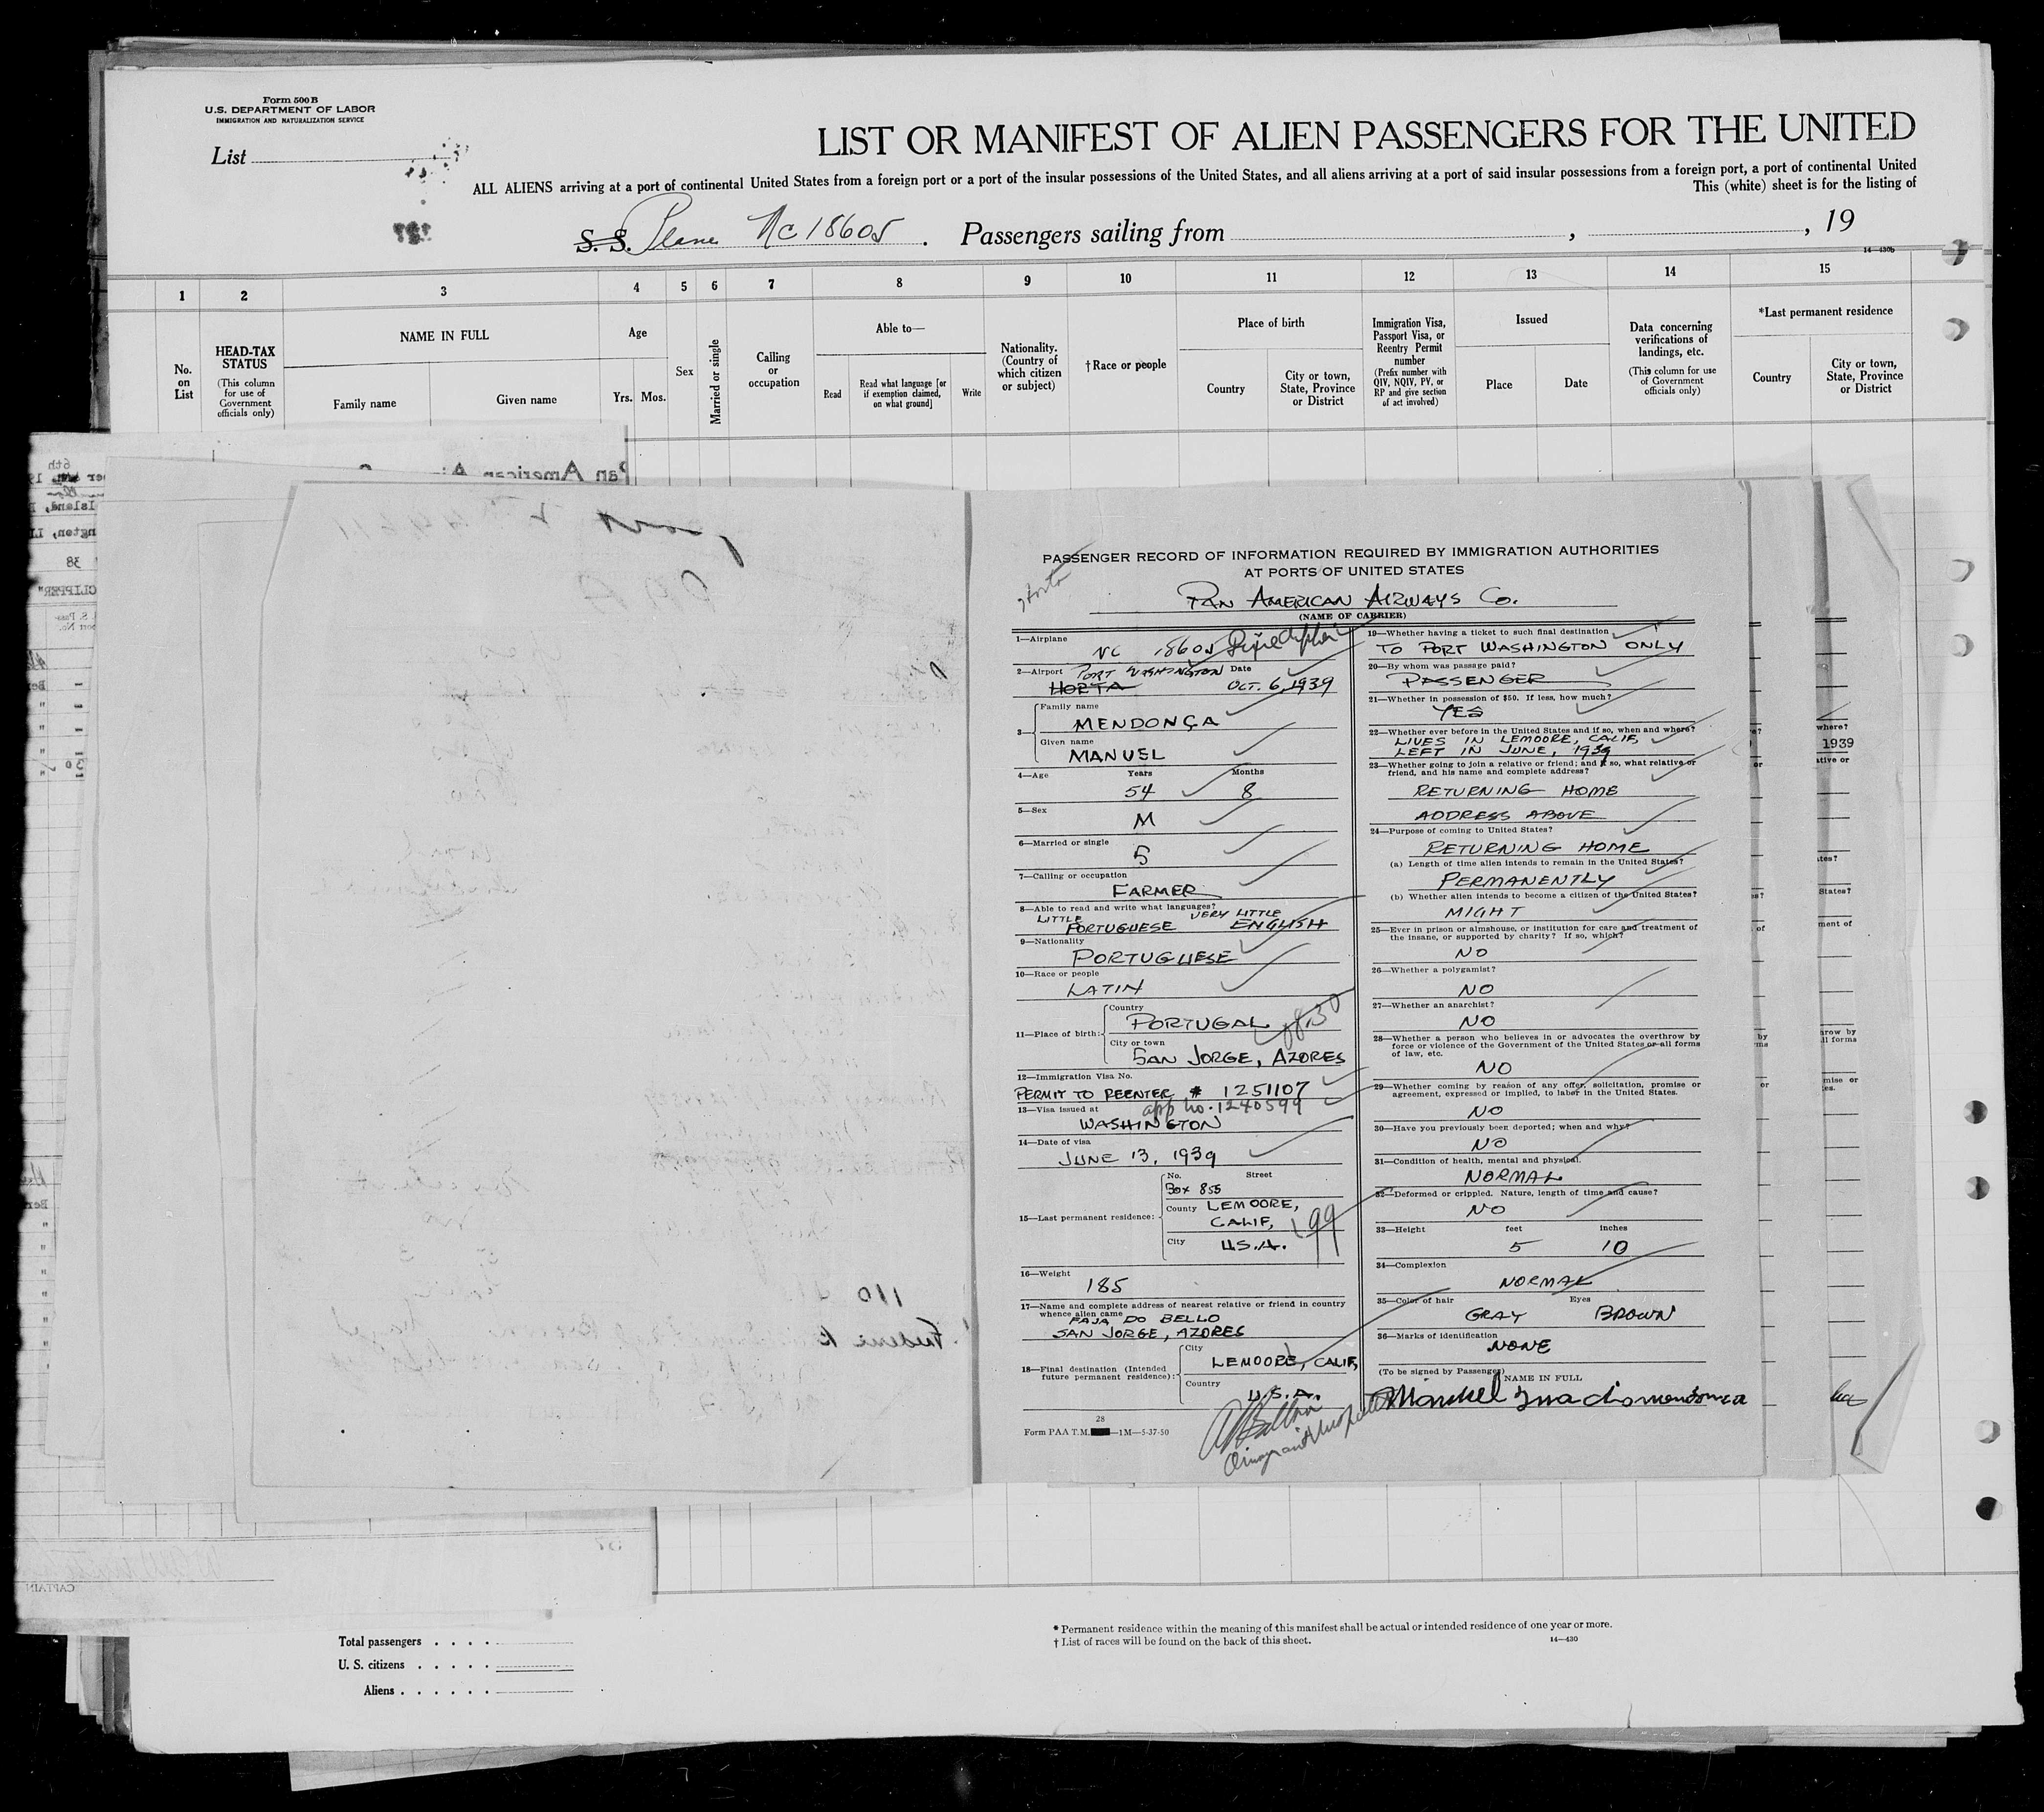 Form 500 B
U.S. DEPARTMENT OF LABOR
IMMIGRATION AND NATURALIZATION SERVICE
List
LIST OR MANIFEST OF ALIEN PASSENGERS FOR THE UNITED
ALL ALIENS arriving at a port of continental United States from a foreign port or a port of the insular possessions of the United States, and all aliens arriving at a port of said insular possessions from a foreign port, a port of continental United
This (white) sheet is for the listing of
S. S. Plane NC 18605 . Passengers sailing from , , 19
14—430b
1 2 3 4 5 6 7 8 9 10 11 12 13 14 15
No. on List
HEAD-TAX STATUS
(This column for use of Government officials only)
NAME IN FULL
Family name
Given name
Age
Yrs. Mos.
Sex
Married or single
Calling or occupation
Able to—
Read
Read what language [or if exemption claimed, on what ground]
Write
Nationality. (Country of which citizen or subject)
†Race or people
Place of birth
Country
City or town, State, Province or District
Immigration Visa, Passport Visa, or Reentry Permit number
(Prefix number with QIV, NQIV, PV, or RP and give section of act involved)
Issued
Place
Date
Data concerning verifications of landings, etc.
(This column for use of Government officials only)
*Last permanent residence
Country
City or town, State, Province or District
Pan American
PASSENGER RECORD OF INFORMATION REQUIRED BY IMMIGRATION AUTHORITIES
AT PORTS OF UNITED STATES
Horta
PAN AMERICAN AIRWAYS CO.
(NAME OF CARRIER)
1—Airplane
NC 18605
2—Airport PORT WASHINGTON Date
HORTA OCT. 6, 1939
3— Family name
MENDONÇA
Given name
MANUEL
4—Age Years Months
54 8
5—Sex
M
6—Married or single
S
7—Calling or occupation
FARMER
8—Able to read and write what languages?
LITTLE VERY LITTLE
PORTUGUESE ENGLISH
9—Nationality
PORTUGUESE
10—Race or people
LATIN
11—Place of birth: Country
PORTUGAL
City or town
SAN JORGE, AZORES
12—Immigration Visa No.
PERMIT TO REENTER # 1251107
13—Visa issued at app no. 1240599
WASHINGTON
14—Date of visa
JUNE 13, 1939
15—Last permanent residence: No. Street
BOX 855
County LEMOORE,
CALIF,
City U.S.A.
99
16—Weight
185
17—Name and complete address of nearest relative or friend in country
whence alien came
FAJA DO BELLO
SAN JORGE, AZORES
18—Final destination (Intended
future permanent residence):
City
LEMOORE, CALIF,
Country
U.S.A.
28
Form PAA T.M. —1M—5-37-50
19—Whether having a ticket to such final destination
TO PORT WASHINGTON ONLY
20—By whom was passage paid?
PASSENGER
21—Whether in possession of $50. If less, how much?
YES
22—Whether ever before in the United States and if so, when and where?
LIVES IN LEMOORE, CALIF,
LEFT IN JUNE, 1939
23—Whether going to join a relative or friend; and if so, what relative or
friend, and his name and complete address?
RETURNING HOME
ADDRESS ABOVE
24—Purpose of coming to United States?
RETURNING HOME
(a) Length of time alien intends to remain in the United States?
PERMANENTLY
(b) Whether alien intends to become a citizen of the United States?
MIGHT
25—Ever in prison or almshouse, or institution for care and treatment of
the insane, or supported by charity? If so, which?
NO
26—Whether a polygamist?
NO
27—Whether an anarchist?
NO
28—Whether a person who believes in or advocates the overthrow by
force or violence of the Government of the United States or all forms
of law, etc.
NO
29—Whether coming by reason of any offer, solicitation, promise or
agreement, expressed or implied, to labor in the United States.
NO
30—Have you previously been deported; when and why?
NO
31—Condition of health, mental and physical.
NORMAL
32—Deformed or crippled. Nature, length of time and cause?
NO
33—Height feet inches
5 10
34—Complexion
NORMAL
35—Color of hair Eyes
GRAY BROWN
36—Marks of identification
NONE
(To be signed by Passenger)
NAME IN FULL
where?
1939
Total passengers . . . .
U. S. citizens . . . . .
Aliens . . . . . .
* Permanent residence within the meaning of this manifest shall be actual or intended residence of one year or more.
† List of races will be found on the back of this sheet.
14—430